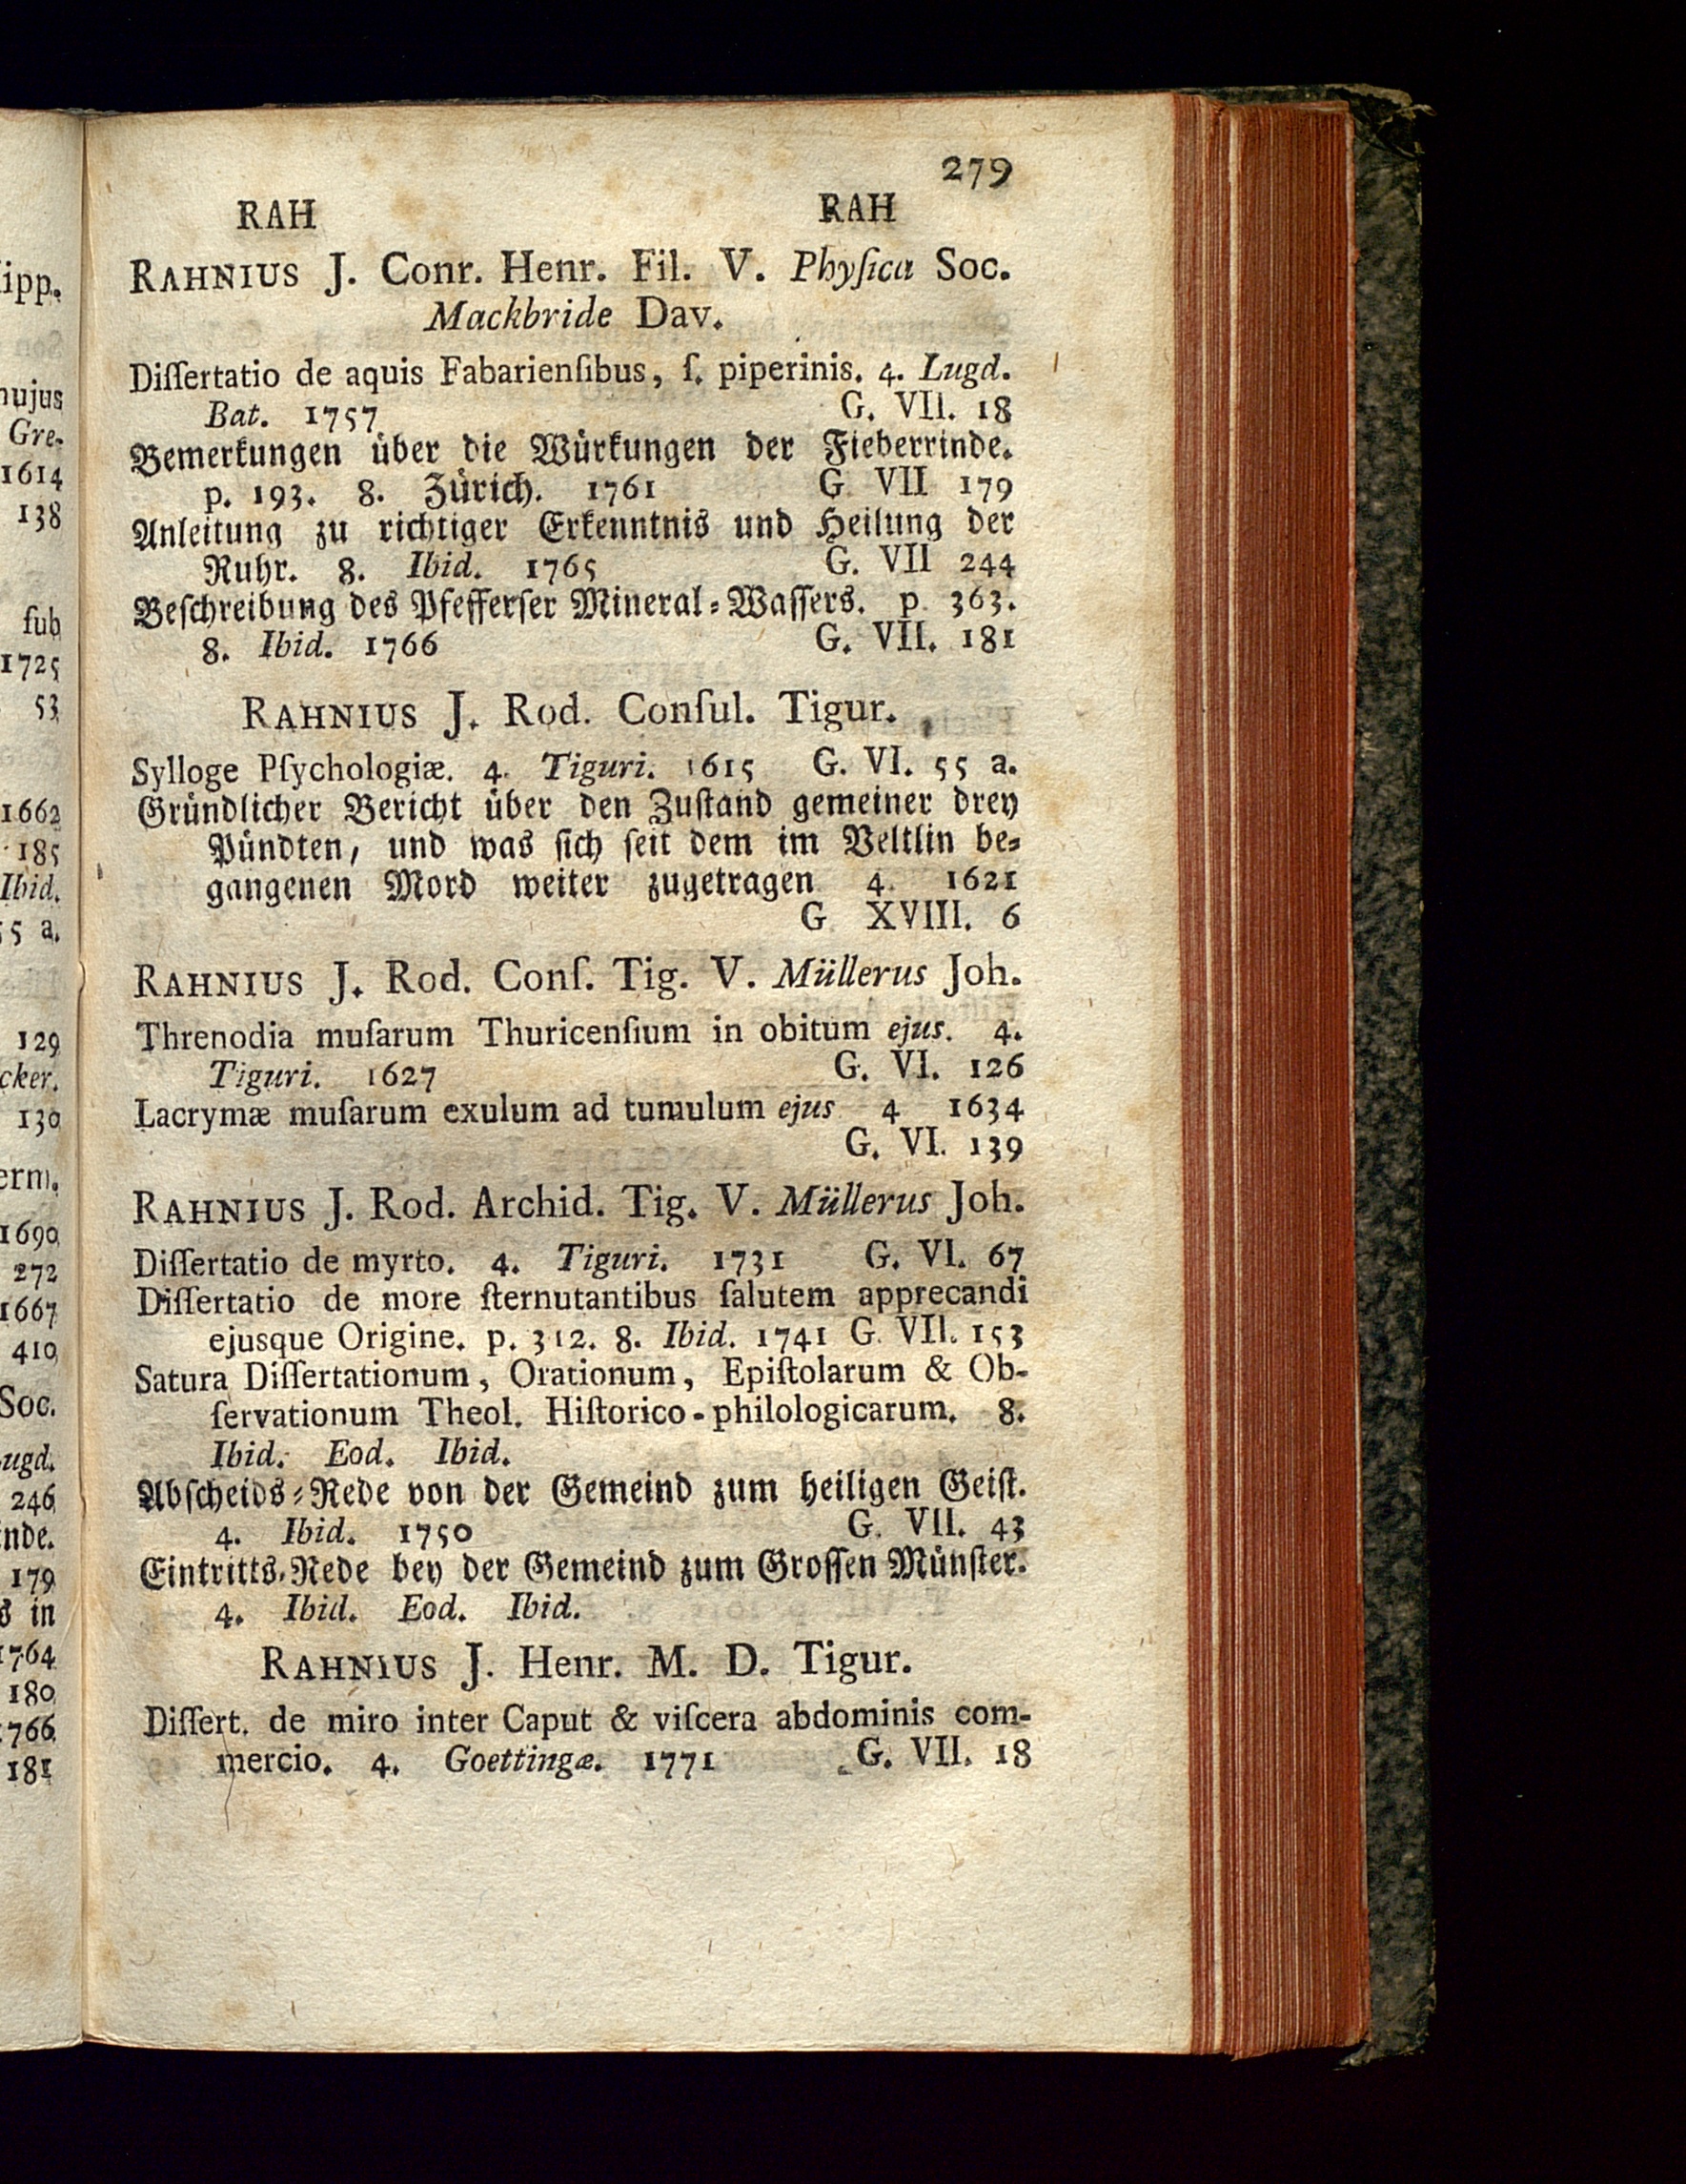 279
RAH RAH
RAHNIUS J. Conr. Henr. Fil. V. Phyſica Soc.
Mackbride Dav.
Diſſertatio de aquis Fabarienſibus, ſ. piperinis. 4. Lugd.
Bat. 1757 G. VII. 18
Bemerkungen über die Würkungen der Fieberrinde.
p. 193. 8. Zürich. 1761 G VII 179
Anleitung zu richtiger Erkenntnis und Heilung der
Ruhr. 8. Ibid. 1765 G. VII 244
Beſchreibung des Pfefferſer Mineral-Waſſers. p 363.
8. Ibid. 1766 G. VII. 181
RAHNIUS J. Rod. Conſul. Tigur.
Sylloge Pſychologiæ. 4. Tiguri. 1615 G. VI. 55 a.
Gründlicher Bericht über den Zuſtand gemeiner drey
Pündten, und was ſich ſeit dem im Veltlin be-
gangenen Mord weiter zugetragen 4. 1621
G XVIII. 6
RAHNIUS J. Rod. Conſ. Tig. V. Müllerus Joh.
Threnodia muſarum Thuricenſium in obitum ejus. 4.
Tiguri. 1627 G. VI. 126
Lacrymæ muſarum exulum ad tumulum ejus 4 1634
G. VI. 139
RAHNIUS J. Rod. Archid. Tig. V. Müllerus Joh.
Diſſertatio de myrto. 4. Tiguri. 1731 G. VI. 67
Diſſertatio de more ſternutantibus ſalutem apprecandi
ejusque Origine. p. 312. 8. Ibid. 1741 G. VII. 153
Satura Diſſertationum, Orationum, Epiſtolarum & Ob-
ſervationum Theol. Hiſtorico-philologicarum. 8.
Ibid. Eod. Ibid.
Abſcheids-Rede von der Gemeind zum heiligen Geiſt.
4. Ibid. 1750 G. VII. 43
Eintritts-Rede bey der Gemeind zum Groſſen Münſter.
4. Ibid. Eod. Ibid.
RAHNIUS J. Henr. M. D. Tigur.
Diſſert. de miro inter Caput & viſcera abdominis com-
mercio. 4. Goettingæ. 1771 G. VII. 18
ipp.
hujus
Gre-
1614
138
ſub
1725
53
1662
185
Ibid.
55 a.
129
cker.
130
erm.
1690
272
1667
410
Soc.
Lugd.
246
inde.
179
s in
1764
180
1766
181